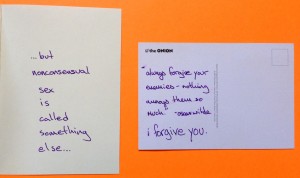 ...but
nonconsensual
sex
is
called
something
else...
the ONION
"always forgive your
enemies - nothing
annoys them so
much." - oscar wilde
i forgive you.